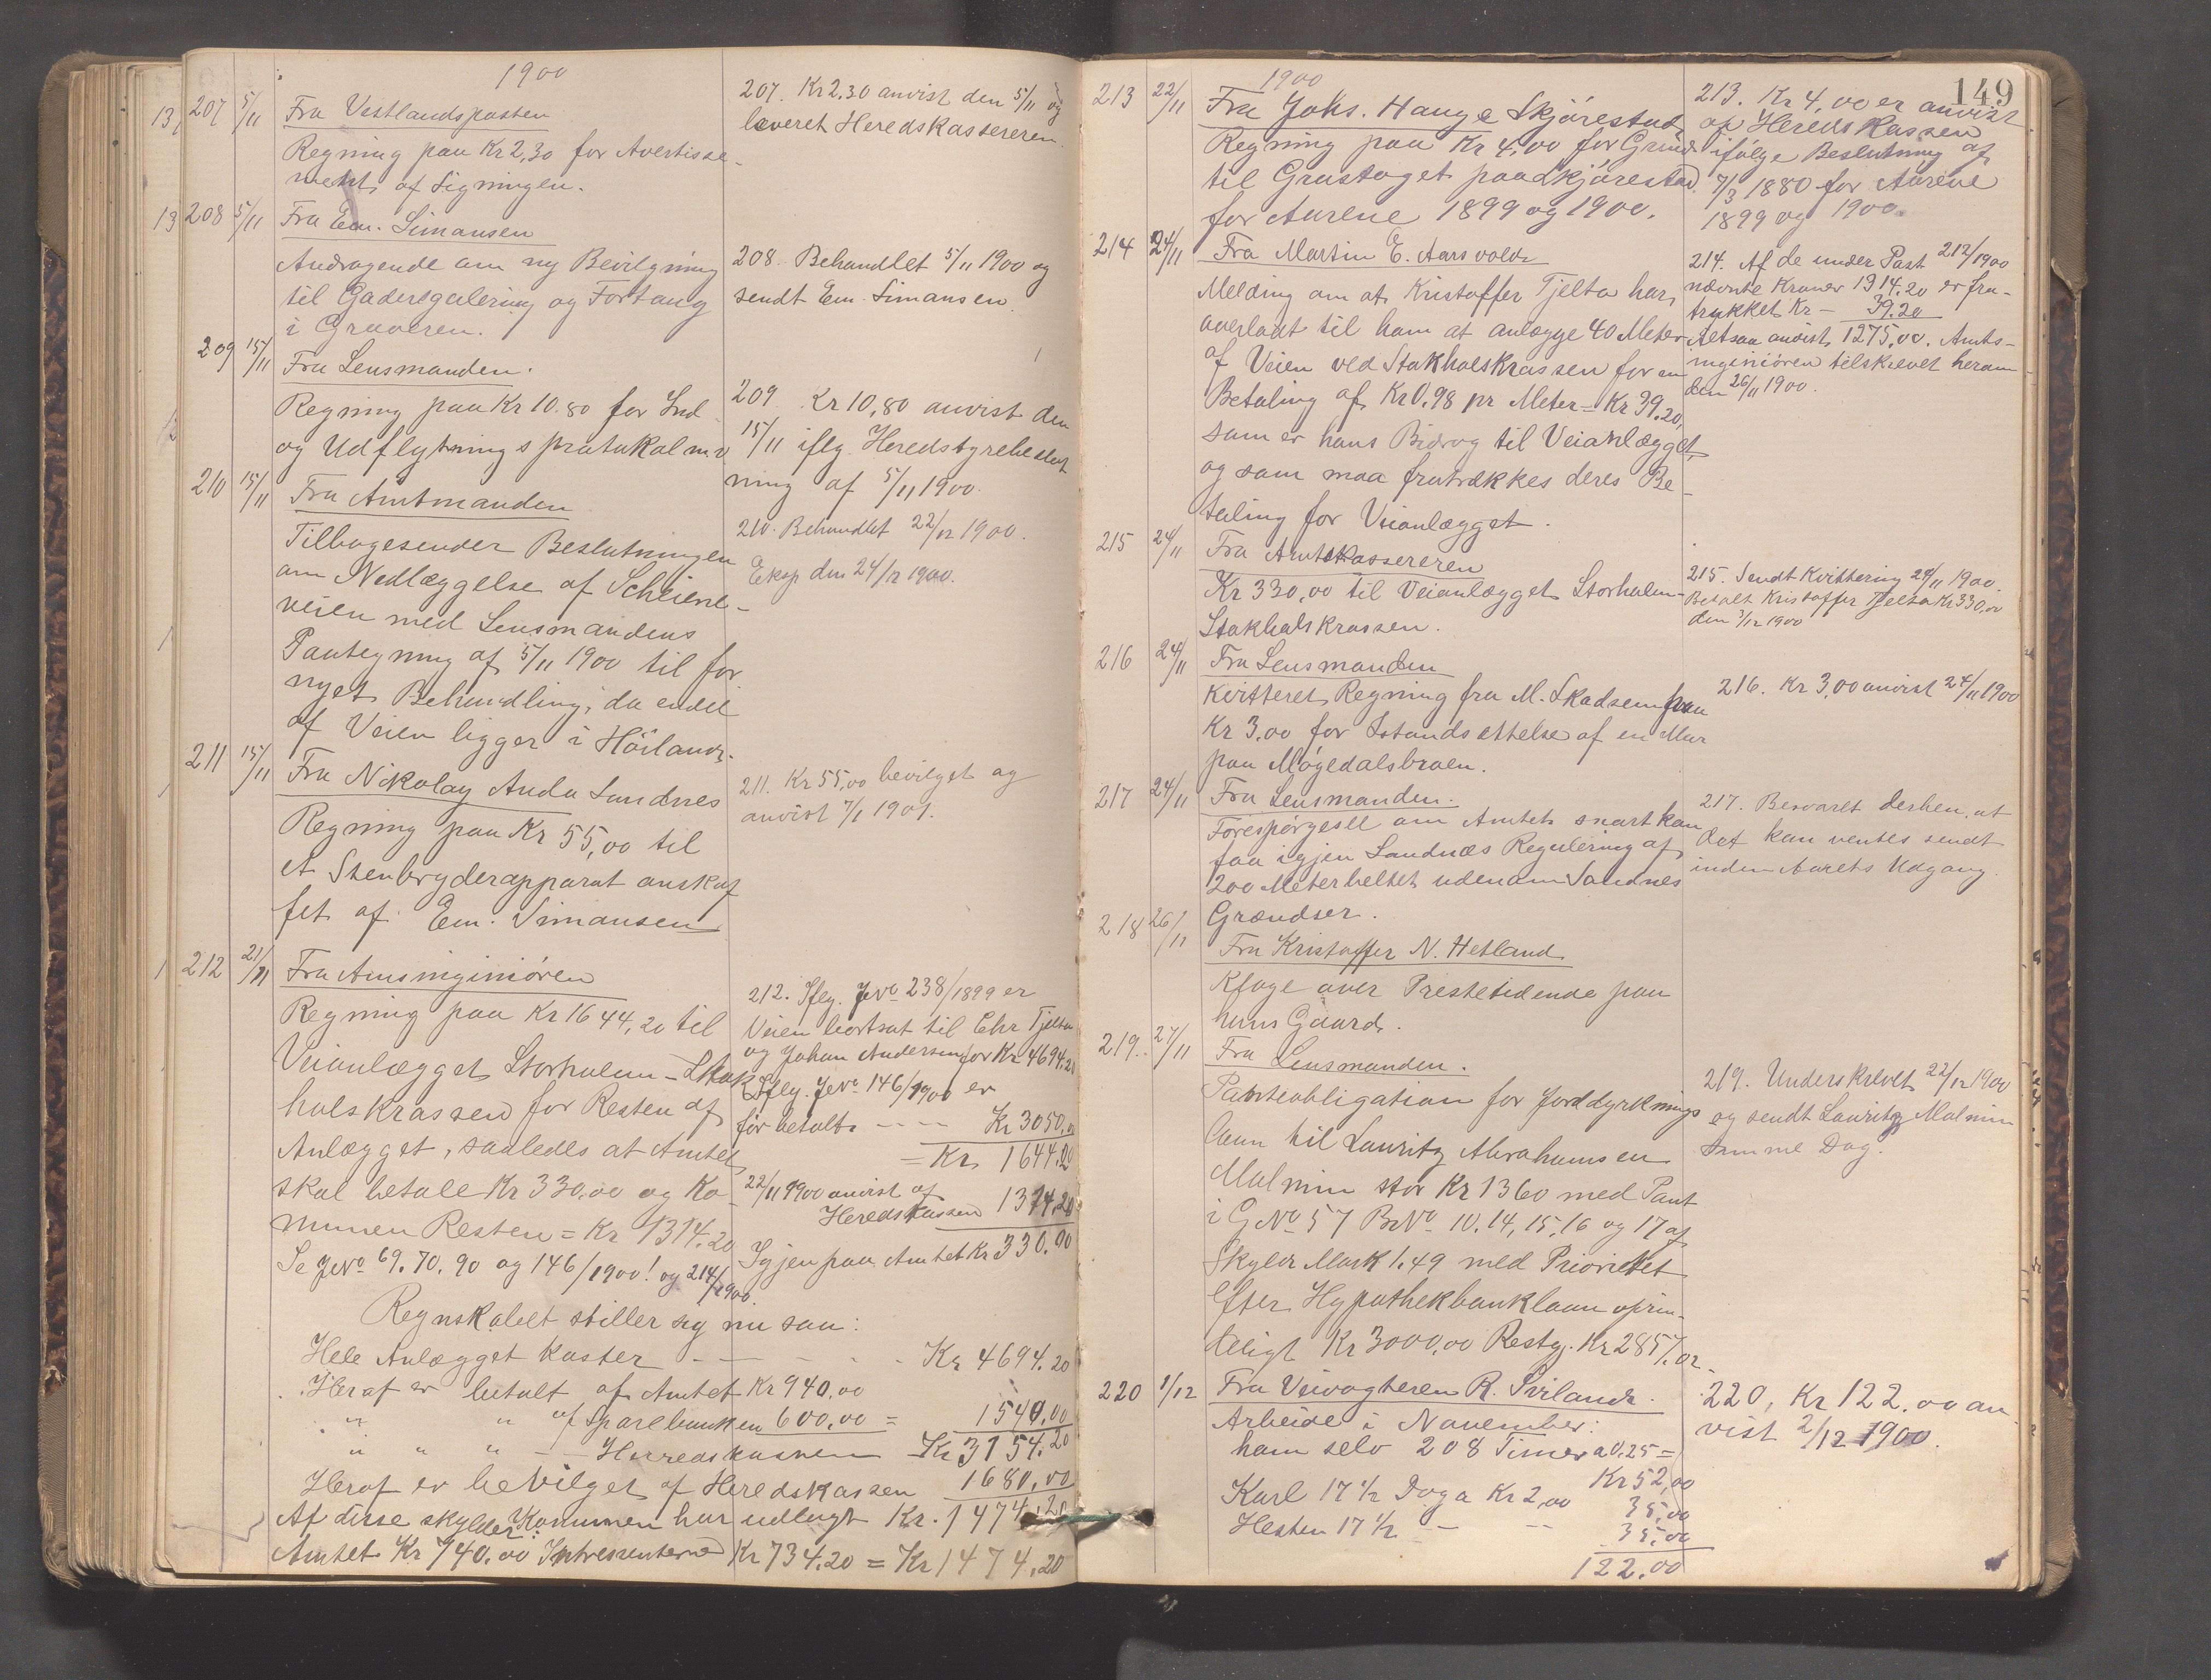 1900
13, 207 5/11 Fra Vestlandsposten
Regning paa Kr 2,30 for Avertisse-
ment af Ligningen.
207. Kr 2.30 anvist den 5/11 og
leveret Heredskassereren.
13 208 5/11 Fra Em. Simonsen
Andragende om ny Bevilgning
til Gaderegulering og Fortaug
i Graveren.
208. Behandlet 5/11 1900 og
sendt Em. Simonsen.
209 15/11 Fra Lensmanden.
Regning paa Kr 10.80 for Ind
og Udflytningsprotokol m.v.
209 Kr 10,80 anvist den
15/11 iflg. Heredstyrebeslut
ning af 5/11 1900.
210 15/11 Fra Amtmanden
Tilbagesender Beslutningen
om Nedlæggelse af
veien med Lensmandens
Paategning af 5/11 1900 til for
nyet Behandling, da endel
af Veien ligger i Höiland.
210. Behandlet 22/12 1900.
Eksp den 24/12 1900.
211 15/11 Fra Nikolay Auda Sandnes
Regning paa Kr 55,00 til
et Stenbryderapparat anskaf
fet af Em. Simonsen
211. Kr 55,00 bevilget og
anvist 7/1 1901.
1 212 21/11 Fra Amsingeniören
Regning paa Kr 1644,20 til
Veianlægget Storhulen - Stok
halskrossen for Resten af
Anlægget, saaledes at Amtet
skal betale Kr 330,00 og Ko-
munen Resten = Kr 1314.20
Se JNo 69. 70. 90 og 146/1900! og 214/1900.
212. Iflg. JNo 238/1899 er
Veien bortsat til Chr Tjelta
og Johan Andersen for Kr 4694.20
Iflg. JNo 146/1900 er
för betalt ---- Kr 3050,00
= Kr 1644.20
22/11 1900 anvist af
Heredskassen 1314.20
Igjen paa Amtet Kr 330.00
Regnskabet stiller sig nu saa:
Hele Anlægget koster - - - - Kr 4694.20
Heraf er betalt af Amtet Kr 940,00
" " af Sparebanken 600,00 = 1540,00
" " " - - Herredskassen Kr 3154.20
Heraf er bevilget af Heredskassen 1680,00
Af disse skylder Komunen har udlagt Kr. 1474.20
Amtet Kr 740.00 Intresenterne Kr 734.20 = Kr 1474.20
149
1900
213 22/11 Fra Johs. Hauge Skjörestad
Regning paa Kr 4,00 for Grund
til Grustaget paa Skjörestad
for Aarene 1899 og 1900.
213. Kr 4,00 er anvist
af Hereds Kassen
ifölge Beslutning af
7/3 1880 for Aarene
1899 og 1900.
214 24/11 Fra Martin E. Aarsvold
Melding om at Kristoffer Tjelta har
overladt til ham at anlægge 40 Meter
af Veien ved Stokhalskrossen for en
Betaling af Kr 0,98 pr Meter = Kr 39.20,
som er hans Bidrag til Veianlægget,
og som maa fratrækkes deres Be-
taling for Veianlægget.
214. Af de under Post 212/1900
nævnte Kroner 1314.20 er fra-
trukket Kr - 39.20
Altsaa anvist 1275,00. Amts-
ingeniören tilskrevet herom
den 26/11 1900.
215 24/11 Fra Amtskassereren
Kr 330,00 til Veianlægget Storhulen-
Stokhalskrossen.
215. Sendt Kvittering 24/11 1900.
Betalt Kristoffer Tjelta Kr 330,00
den 3/12 1900
216 24/11 Fra Lensmanden
Kvitteret Regning fra M. Skadsem paa
Kr 3,00 for Istandsættelse af en Mur
paa Mögedalsbroen.
216. Kr 3,00 anvist 24/11 1900
217 24/11 Fra Lensmanden.
Forespörgsel om Amtet snart kan
faa igjen Sandnæs Regulering af
200 Meterbeltet udenom Sandnes
Grændser.
217. Besvaret derhen, at
det kan ventes sendt
inden Aarets Udgang.
218 26/11 Fra Kristoffer N. Hetland
Klage over Prestetidende paa
hans Gaard.
219. 27/11 Fra Lensmanden.
Panteobligation for Jorddyrknings
laan til Lauritz Abrahamsen
Malmin stor Kr 1360 med Pant
i GNo 57 BNo 10.14,15,16 og 17 af
Skyld Mark 1.49 med Prioritet
efter Hypothekbanklaan oprin-
deligt Kr 3000,00 Restg. Kr 2857.02-
219. Underskrevet 22/12 1900
og sendt Lauritz Malmin
samme Dag.
220 1/12 Fra Veivogteren R. Sviland.
Arbeide i November:
ham selv 208 Timer a 0,25 =
Kr 52,00
Karl 17 1/2 Dag a Kr 2,00 35,00
Hesten 17 1/2 - - 35,00
122.00
220, Kr 122.00 an
vist 2/12 1900.